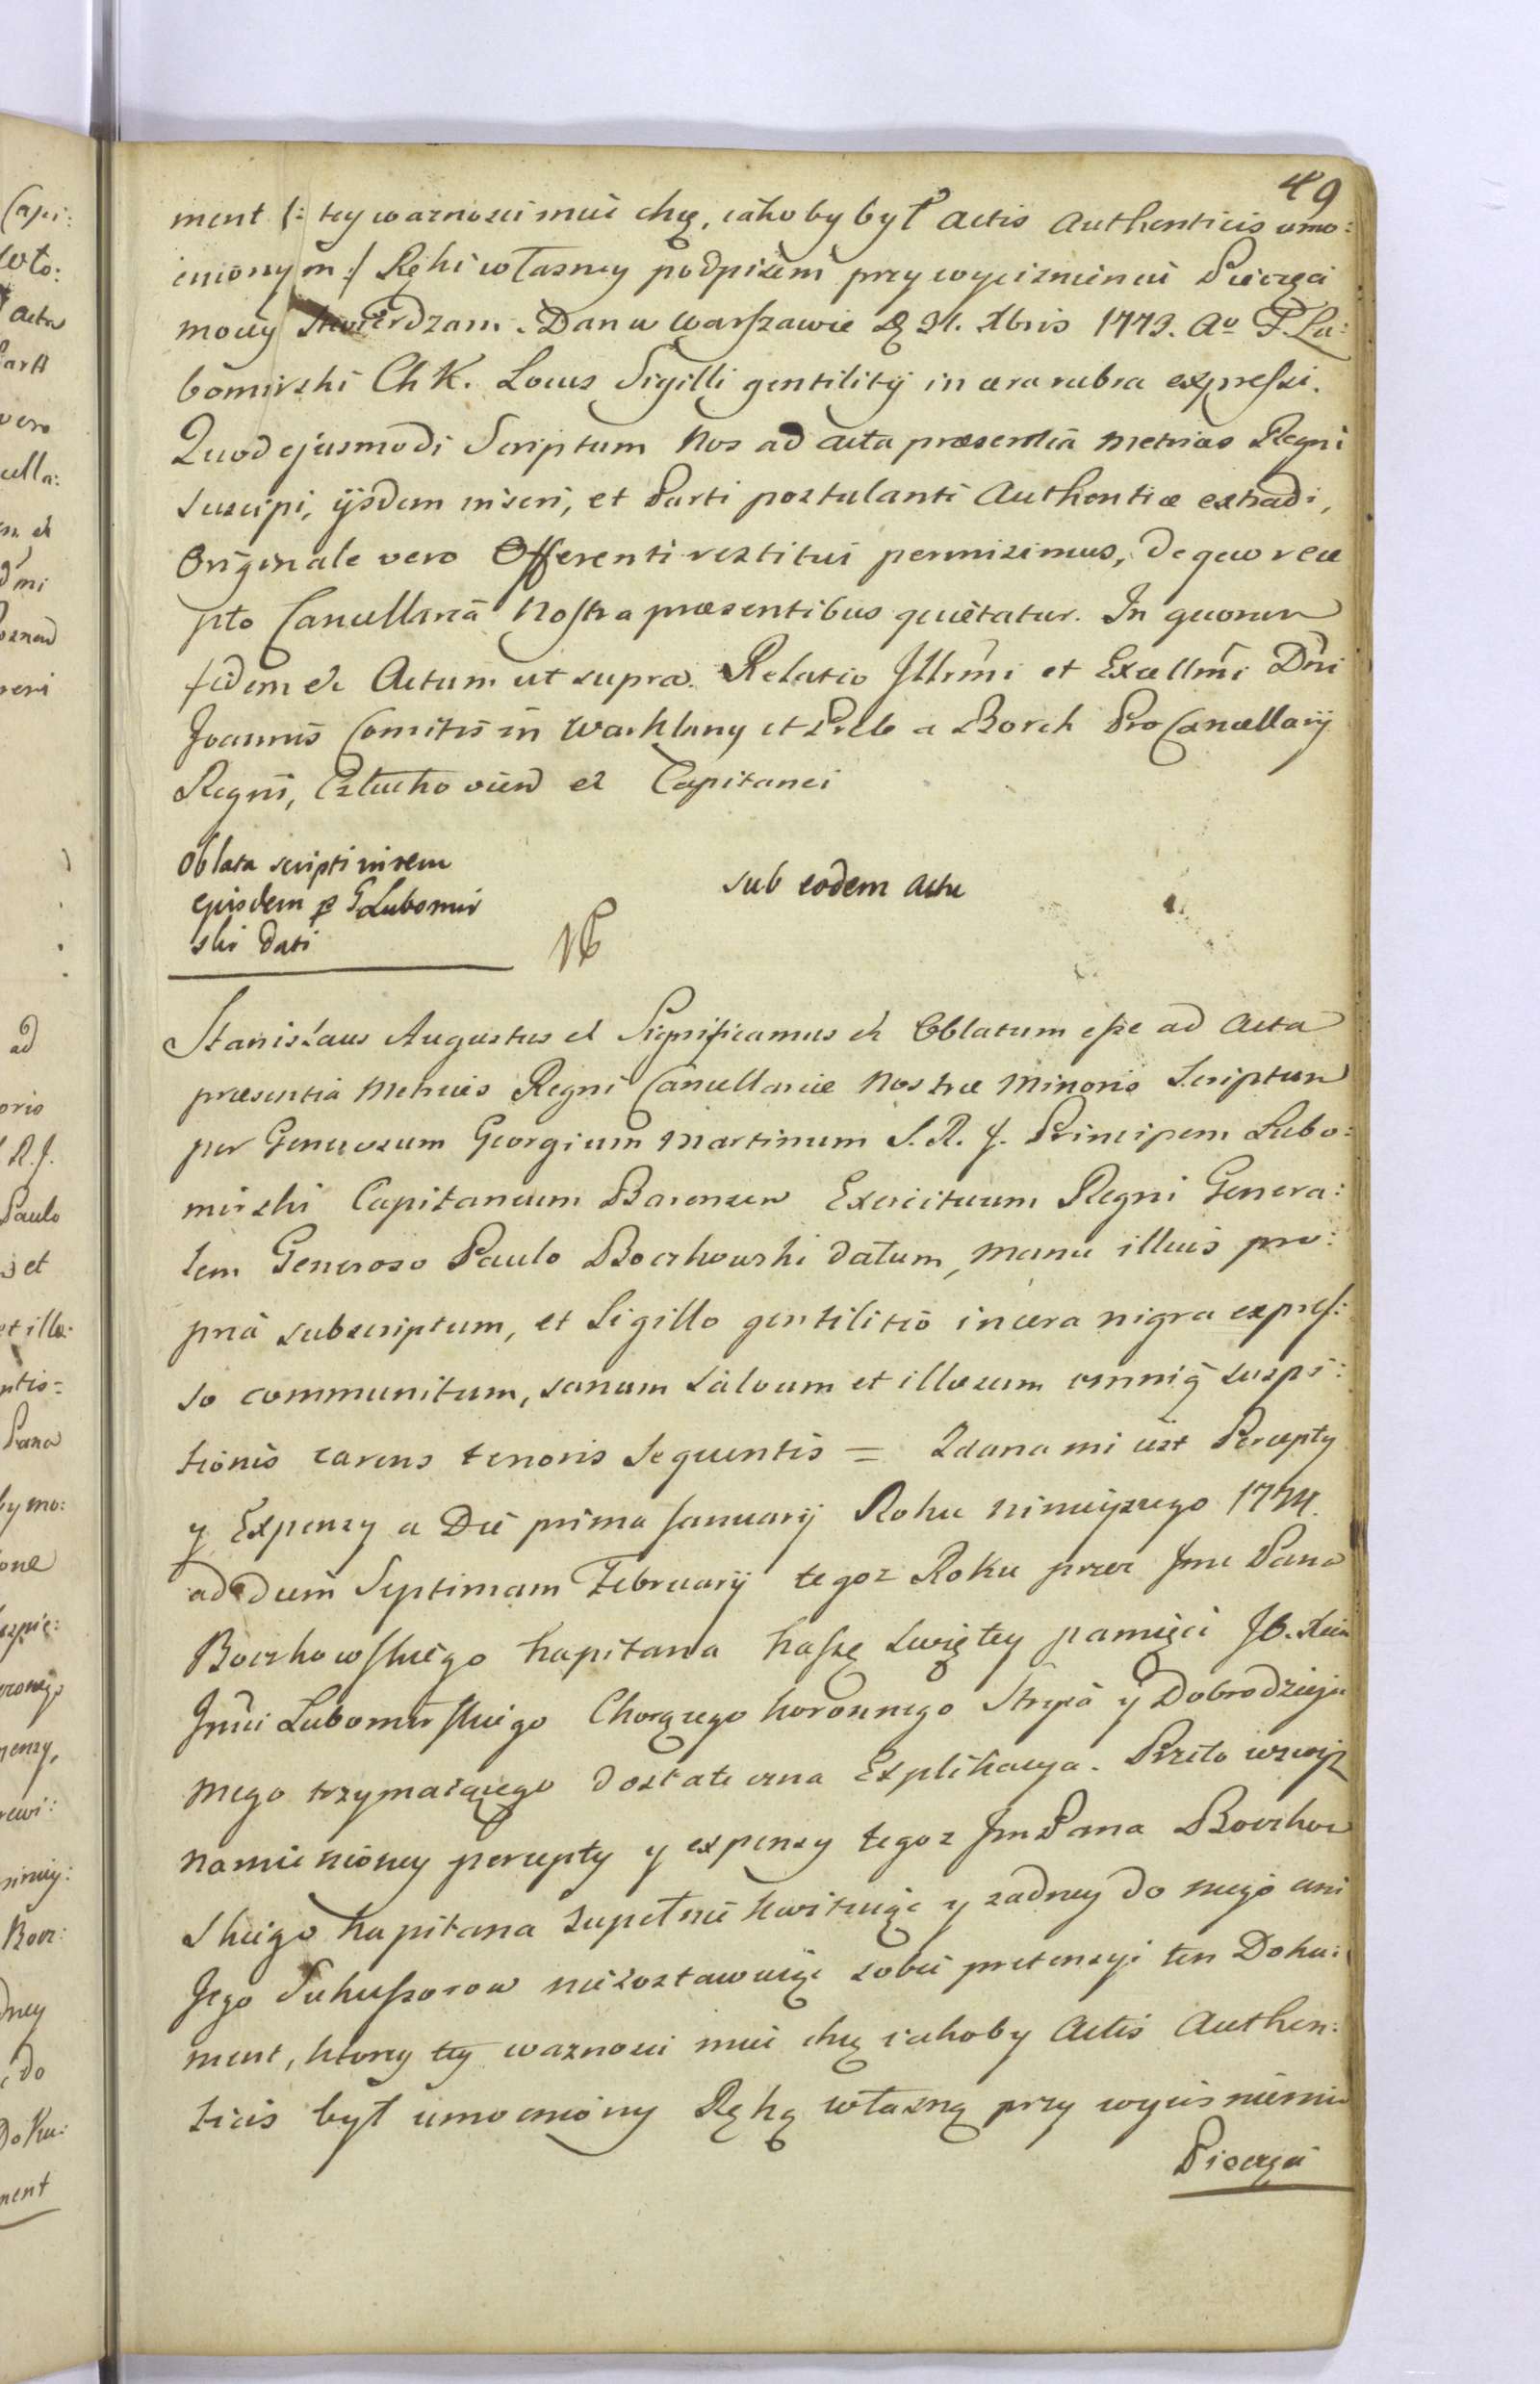 49
ment /: tey wazności mieć chcę, iakoby był actis authenticis umo:
cniony m :/ Ręki własney podpisem przy wycisnieniu Pieczęci
moiey stwierdzam. Dan w Warszawie D. 31. Xbris 1773. Ao F. Lu:
bomirski Ch K. Locus Sigilli gentilitij in cera rubra expressi.
Quod ejusmodi Scriptum Nos ad acta præsentia Metrices Regni
suscipi, ijsdem inseri, et Parti postulanti Authentice extradi,
Originale vero Offerenti restitui permisimus, de quo rece
pto Cancellaria Nostra præsentibus quietatur. In quorum
fidem etc Actum ut supra. Relatio Illrmi et Excellmi Dni
Joannis Comitis in Warklany et Prele a Borch Pro Cancellarij
Regni, Człuchovien et Capitanei
Oblata scripti itidem
ejusdem p G Lubomir
ski dati
sub eodem actu
Stanislaus Augustus et Significamus etc Oblatum esse ad Acta
præsentia Metrices Regni Cancellariæ Nostræ Minoris Scriptum
per Generosum Georgium Martinum S. R. J. Principem Lubo:
mirski Capitaneum Barensem Exercituum Regni Genera:
lem Generoso Paulo Boczkowski datum, manu illius pro:
pria subscriptum, et Sigillo gentilitio in cera nigra expres:
so communitum, sanum salvum et illæsum omniq suspi:
tionis carens tenoris sequentis = Zdana mi iest Percepty
y Expensy a Die prima Januarij Roku ninieyszego 1774.
ad diem Septimam Februarij tegoz Roku przez Jmc Pana
Boczkowskiego Kapitana Kassę swiętey pamięci JO. Xcia
Jmci Lubomirskiego Chorązego Koronnego Stryia y Dobrodzieja
mego trzymaiącego dostateczna Explikacya. Przeto wzwyż
namienioney percepty y expensy tegoz Jm Pana Boczkow
skiego Kapitana zupełnie kwituiąc y zadney do niego ani
Jego Sukcessorow nie zostawuiąc sobie pretensyi ten Doku:
ment, ktory tey wazności mieć chcę iakoby Actis Authen:
ticis był umocniony Ręką własną przy wycisnieniu
Pieczęci